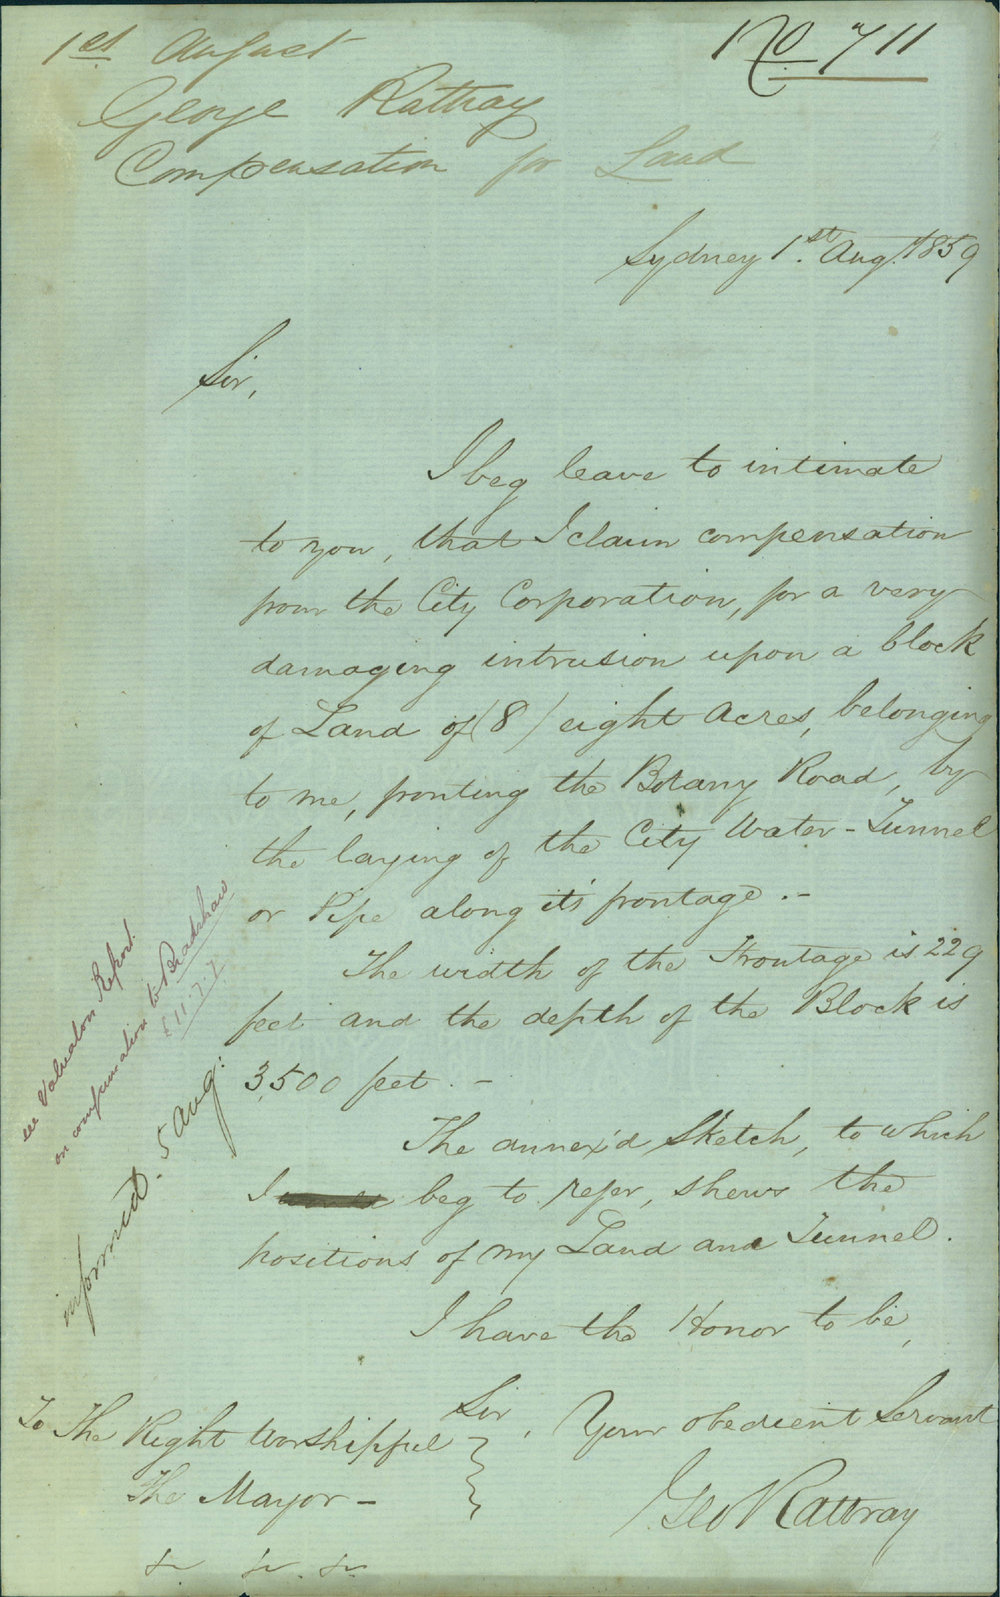 1st August
No 711
George Rattray
Compensation for Land
Sydney 1st. Aug. 1859
Sir,
I beg leave to intimate
to you, that I claim compensation
from the City Corporation, for a very
damaging intrusion upon a block
of Land of (8) eight Acres, belonging
to me, fronting the Botany Road, by
the laying of the City Water-Tunnel
or Pipe along it's frontage. -
The width of the Frontage is 229
feet and the depth of the Block is
3,500 feet. -
The annex'd Sketch, to which
I beg to refer, shews the
positions of my Land and Tunnel.
I have the Honor to be,
Sir,
Your obedient Servant
Geo Rattray
To The Right Worshipful
The Mayor -
&c. &c. &c.
see Valuation Report
on compensation to Bradshaw
£11.7.7
informed. 5 Aug: